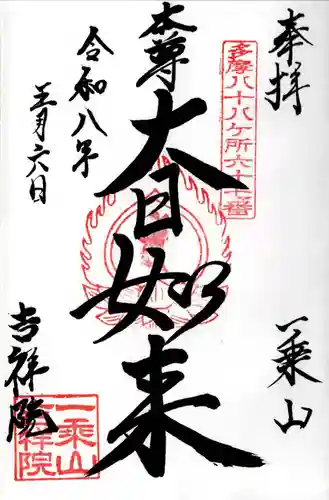 奉拝
多摩八十八ケ所六十七番
一乗山
本尊
大日如来
令和八年
三月六日
吉祥院
一乗山
吉祥院